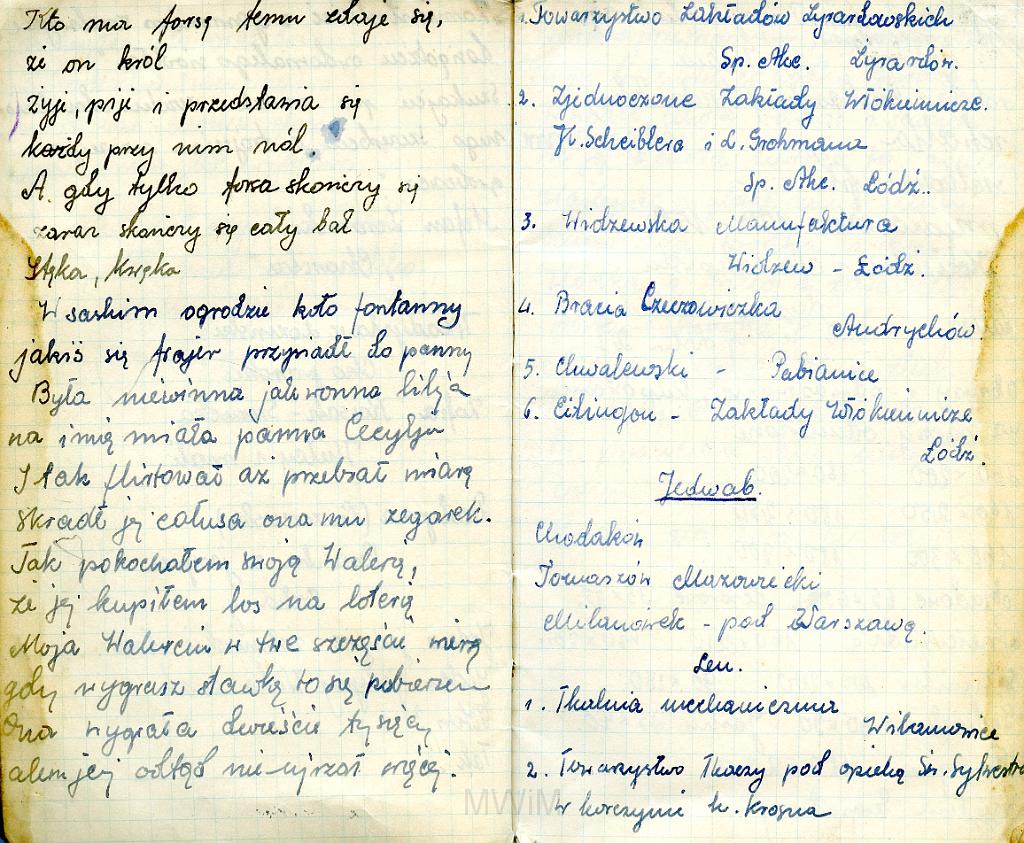 Kto ma forsę temu zdaje się,
że on król
żyji, piji i przedstawia się
każdy przy nim nól.
A. gdy tylko forsa skończy się
zaraz skończy się cały bal
Stęka, kwęka
W saskim ogrodzie koło fontanny
jakiś się frajer przysiadł do panny
Była niewinna jak wonna lilja
na imię miała panna Cecylja
I tak flirtował aż przebrał miarę
skradł jej całusa ona mu zegarek.
Tak pokochałem swoją Walerę,
że jej kupiłem los na loterię
Moja Walerciu w twe szczęście wierzę
gdy wygrasz stawkę to się pobierzem
Ona wygrała dwieście tysięcy
alem jej odtąd nie ujrzał więcej.
1. Towarzystwo Zakładów Żyrardowskich
Sp. Akc. Żyrardów.
2. Zjednoczone Zakłady Włókiennicze.
K. Scheiblera i L. Grohmana
Sp. Akc. Łódź.
3. Widzewska Manufaktura
Widzew - Łódź.
4. Bracia Czeczowiczka
Andrychów.
5. Chwalewski - Pabianice
6. Eitingon - Zakłady Włókiennicze
Łódź.
Jedwab.
Chodaków
Tomaszów Mazowiecki
Milanówek - pod Warszawą.
Len.
1. Tkalnia mechaniczna
Wilamowice
2. Towarzystwo Tkaczy pod opieką Św. Sylwestra
w Korczynie k. Krosna
MWiM